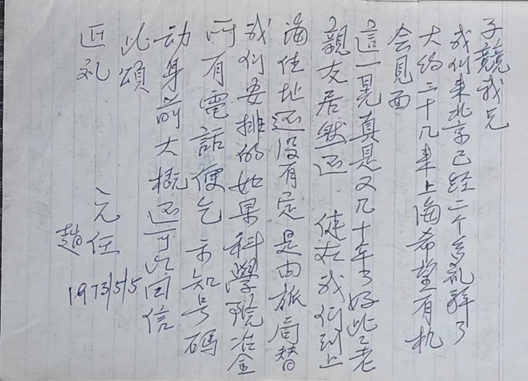 子競我兄
我们来北京已经二个多礼拜了
大约二十几来上海希望有机
会見面
這一晃真是又几十年了好些老
親友居然还健在我们到上
海住址还没有定是由旅局替
我们安排的如果科學院冶金
所有電話便乞示知号碼
动身前大概还可以回信
此頌
近礼
元任
趙
1973/5/5